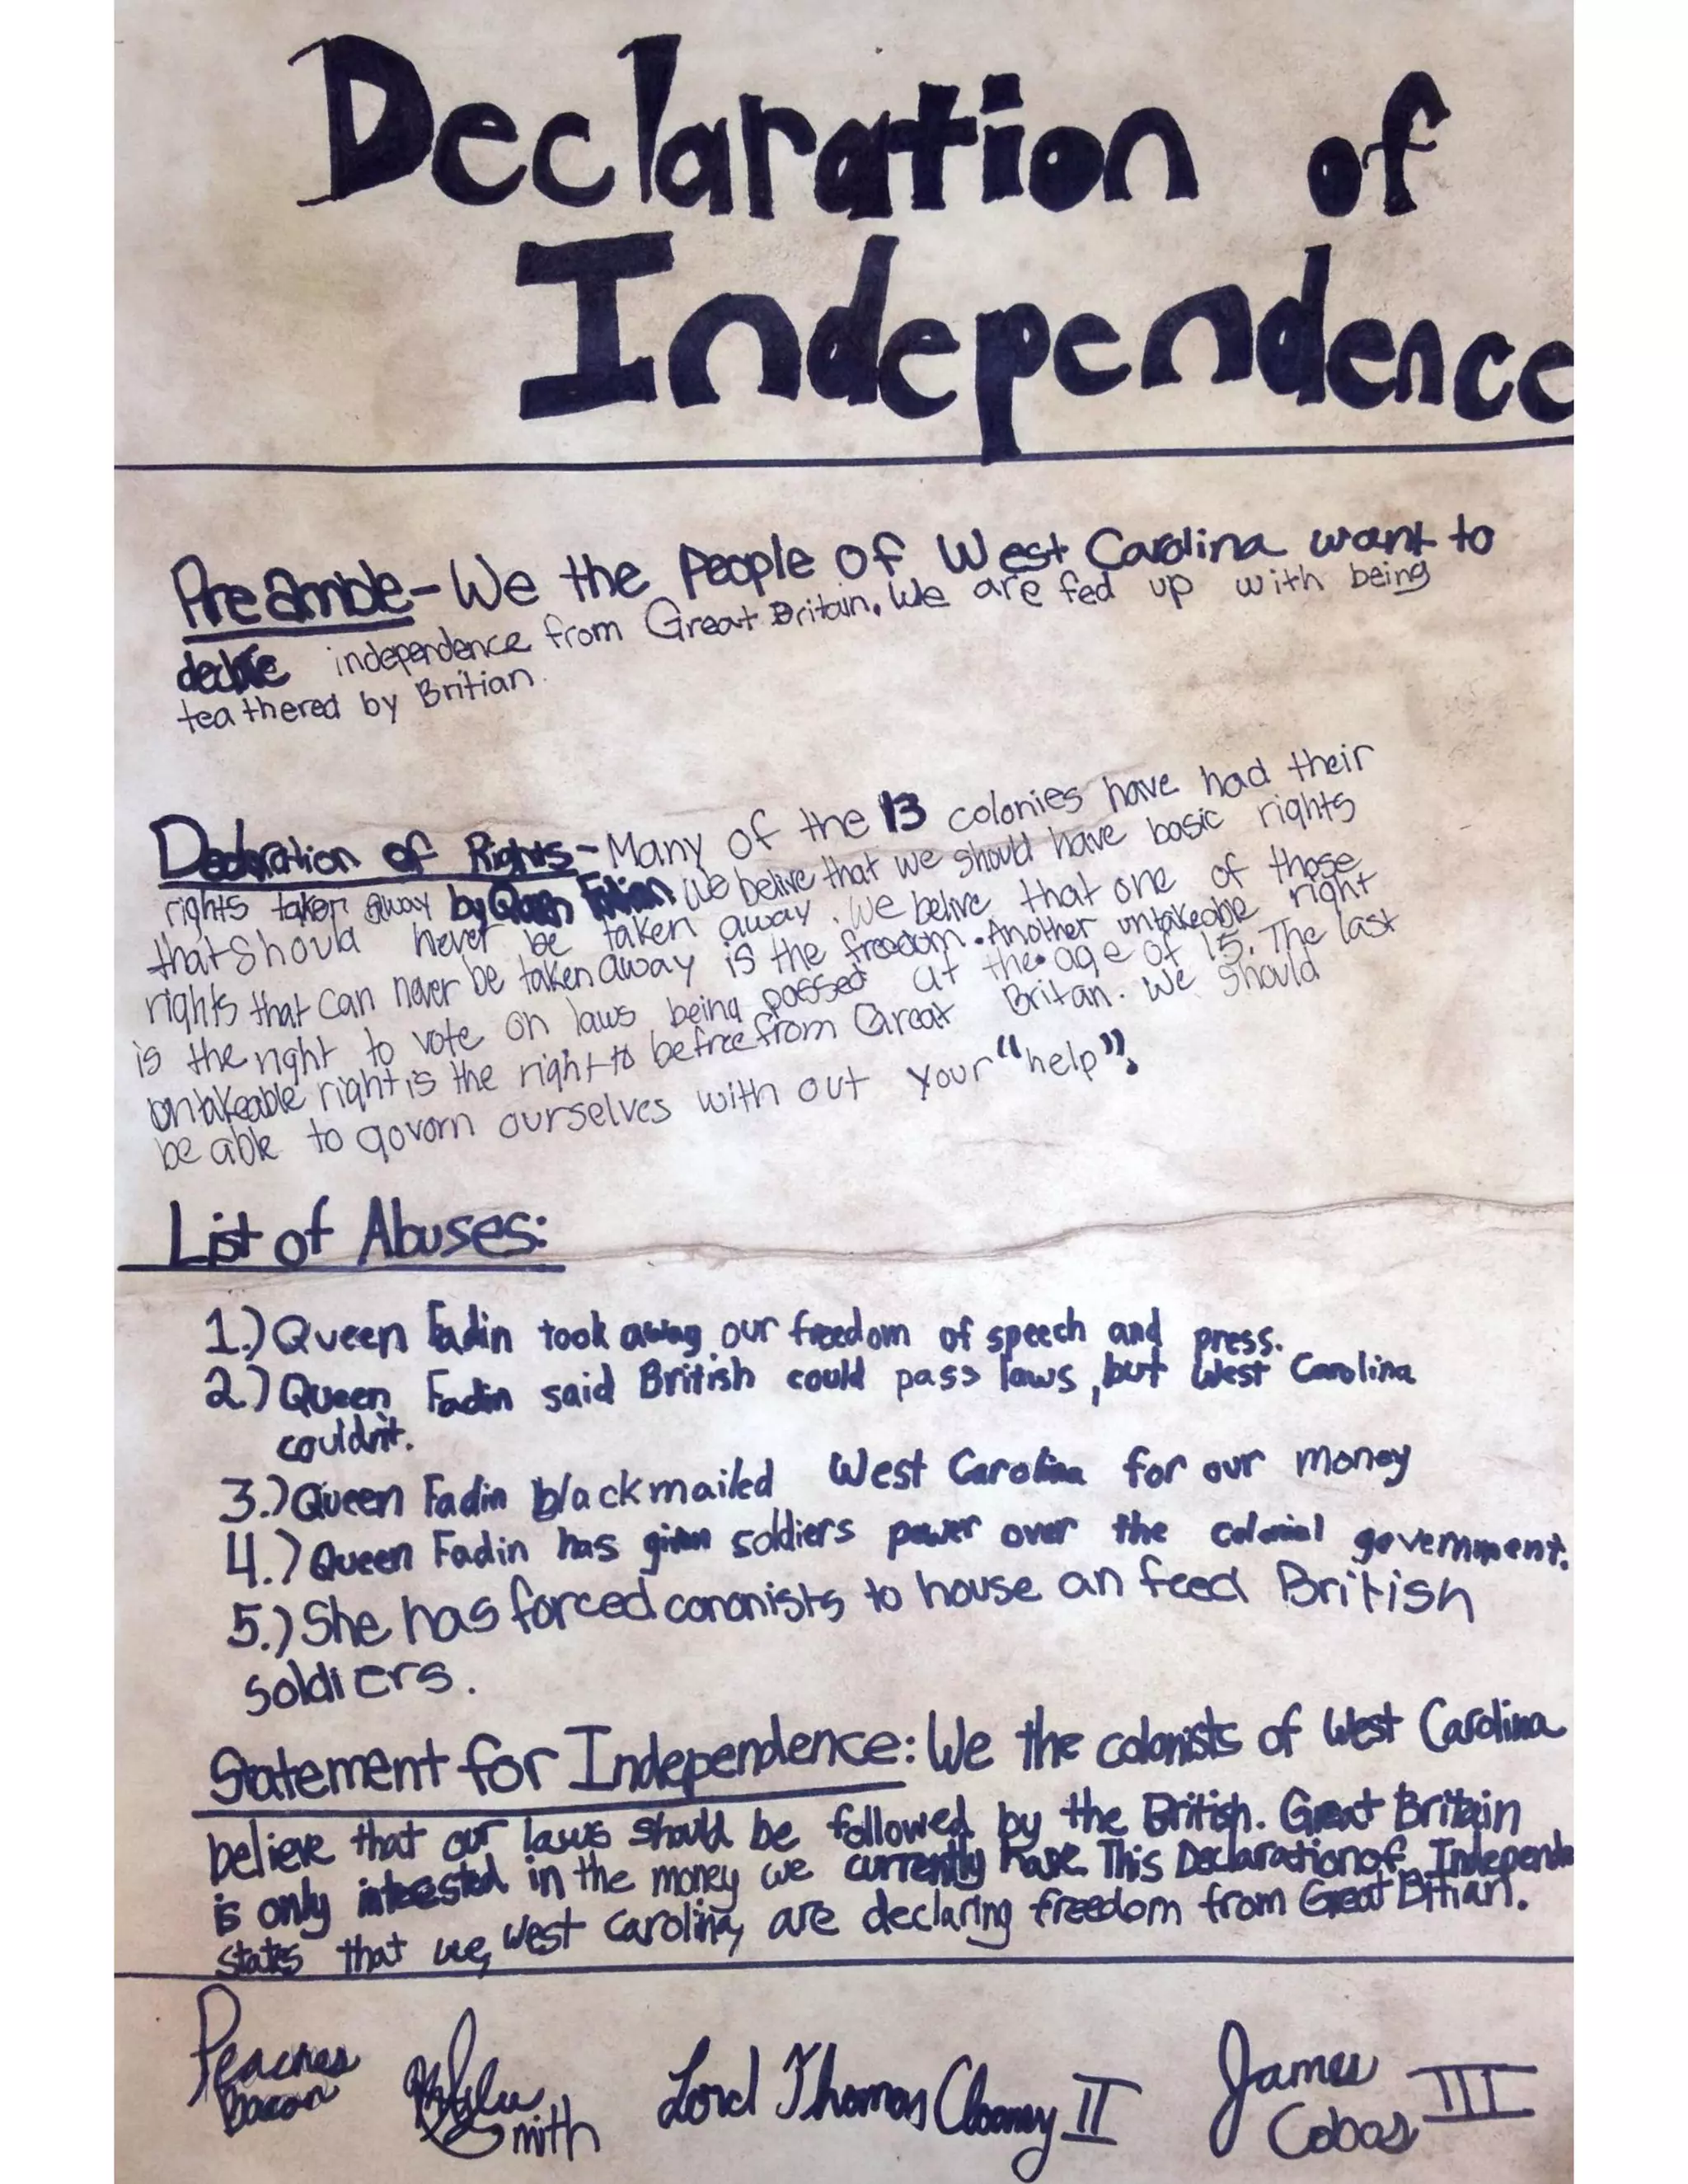 Declaration of
Independence
PreAmble - We the People of West Carolina want to
declare independence from Great Britain. We are fed up with being
teathered by Britian.
Decloration of Rights - Many of the 13 colonies have had their
rights taken away by Queen We belive that we should have basic rights
that should never be taken away. We belive that one of those
rights that can never be taken away is the freedom. Another untakeable right
is the right to vote on laws being passed at the age of 15. The last
untakeable right is the right to be free from Great Britan. We should
be able to govorn ourselves with out your "help".
List of Abuses:
1.) Queen Fadin took away our freedom of speech and press.
2.) Queen Fadin said British could pass laws, but West Carolina
couldn't.
3.) Queen Fadin blackmailed West Carolina for our money
4.) Queen Fadin has given soldiers power over the colonial government.
5.) She has forced cononists to house an feed British
soldiers.
Statement for Independence: We the colonists of West Carolina
believe that our laws should be followed by the British. Great Britain
is only interested in the money we currently have. This Declaration of Independe
states that we, West Carolina, are declaring freedom from Great Bitian.
Peaches Bacon
Smith
Lord Thomas Clooney II
James Cobas III